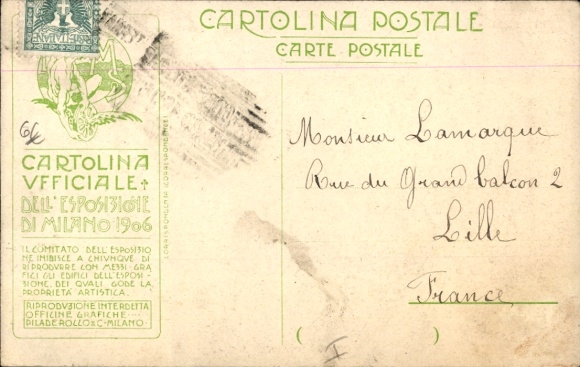 CARTOLINA POSTALE
CARTE POSTALE
6€
CARTOLINA
VFFICIALE
DELL'ESPOSIZIONE
DI MILANO 1906
IL COMITATO DELL'ESPOSIZIO
NE INIBISCE A CHIVNQVE DI
RIPRODVRRE CON MEZZI GRA
FICI GLI EDIFICI DELL'ESPOSI-
SIONE, DEI QVALI GODE LA
PROPRIETÀ ARTISTICA.
RIPRODVZIONE INTERDETTA
OFFICINE GRAFICHE
PILADE ROCCO & C-MILANO-
Monsieur Lamarque
Rue du Grand balcon 2
Lille
France
( )
I